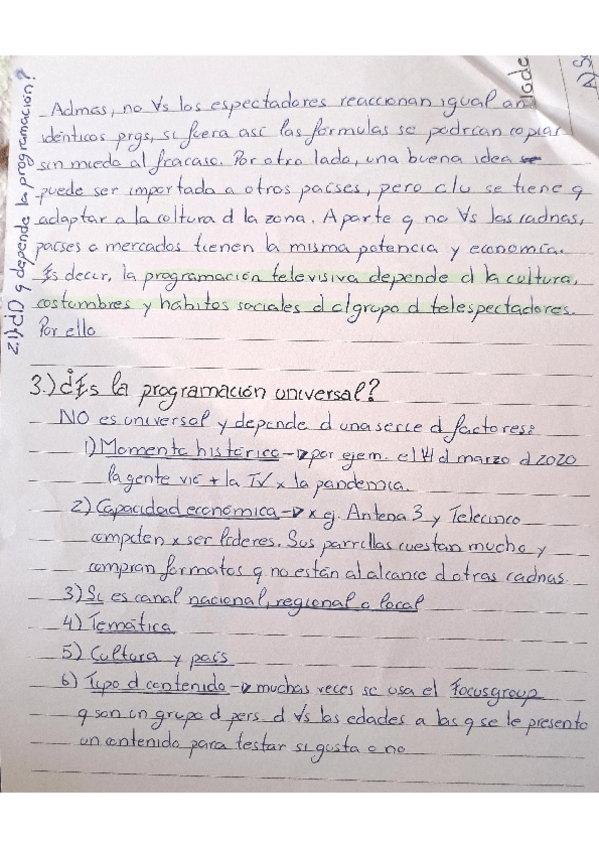 Admas, no ∀s los espectadores reaccionan igual an
idénticos prgs, si fuera así las fórmulas se podrían copiar
sin miedo al fracaso. Por otro lado, una buena idea se
puede ser importada a otros países, pero clu se tiene q
adaptar a la cultura d la zona. Aparte q no ∀s las cadnas,
países o mercados tienen la misma potencia y economía.
Es decir, la programación televisiva depende d la cultura,
costumbres y hábitos sociales d el grupo d telespectadores.
Por ello
3.) ¿Es la programación universal?
NO es universal y depende d una serie d factores:
1) Momento histórico → por ejem. el 14 d marzo d 2020
la gente vió + la TV x la pandemia.
2) Capacidad económica → x ej. Antena 3 y Telecinco
compiten x ser líderes. Sus parrillas cuestan mucho y
compran formatos q no están al alcance d otras cadnas.
3) Si es canal nacional, regional o local
4) Temática
5) Cultura y país
6) Tipo d contenido → muchas veces se usa el focusgroup
q son un grupo d pers. d ∀s las edades a las q se le presenta
un contenido para testar si gusta o no
q depende la programación?
lade